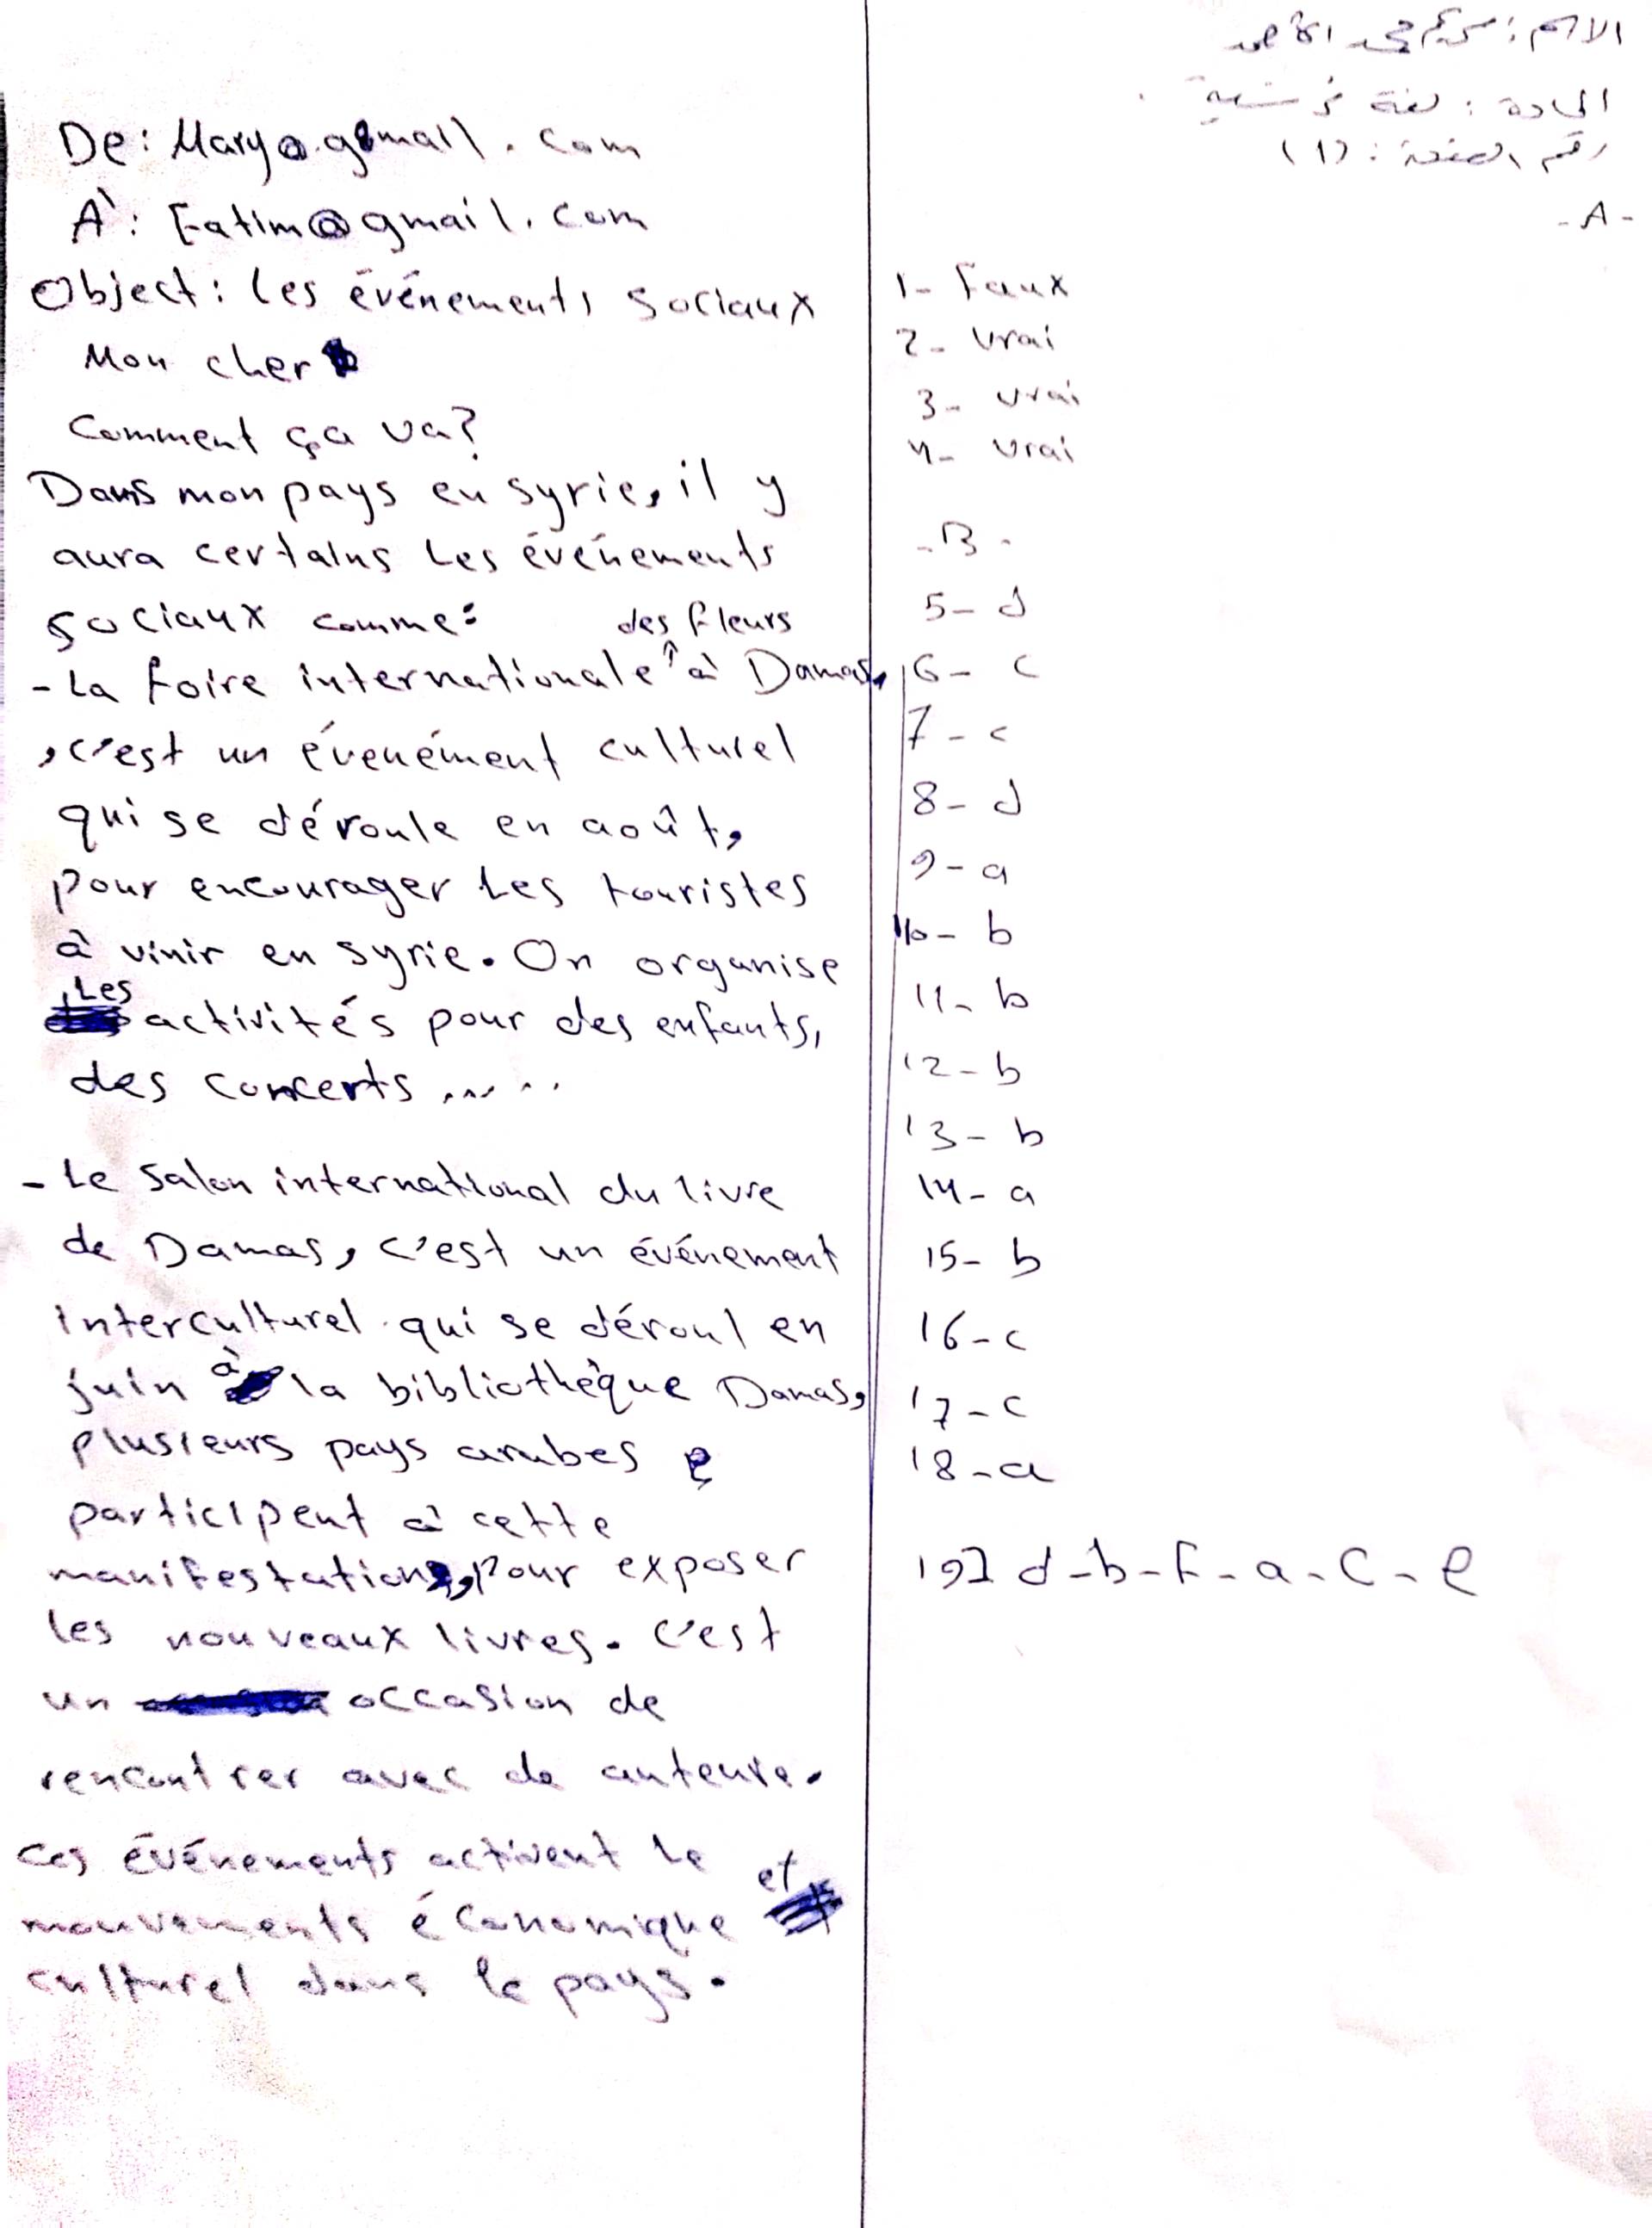 الاسم: مريم محمد الأحمد
المادة: لغة فرنسية
رقم الصفحة: (1)
-A-
1- Faux
2- vrai
3- vrai
4- vrai
-B-
5- d
6- c
7- c
8- d
9- a
10- b
11- b
12- b
13- b
14- a
15- b
16- c
17- c
18- a
19] d-b-F-a-C-e
De: Mary@.gmail.com
À: Fatim@gmail.com
Object: les événements sociaux
Mon cher
Comment ça va?
Dans mon pays en syrie, il y
aura certains Les événements
sociaux comme:
- La foire internationale des fleurs à Damas,
, c'est un événément culturel
qui se déroule en août,
pour encourager Les touristes
à vinir en syrie. On organise
Les activités pour des enfants,
des concerts .....
- Le salon international du livre
de Damas, c'est un événement
interculturel qui se déroul en
juin à la bibliothèque Damas,
plusieurs pays arabes
participent à cette
manifestation, pour exposer
les nouveaux livres. C'est
un occasion de
rencontrer avec de auteure.
Ces événements activent le
mouvements économique et
culturel dans le pays.